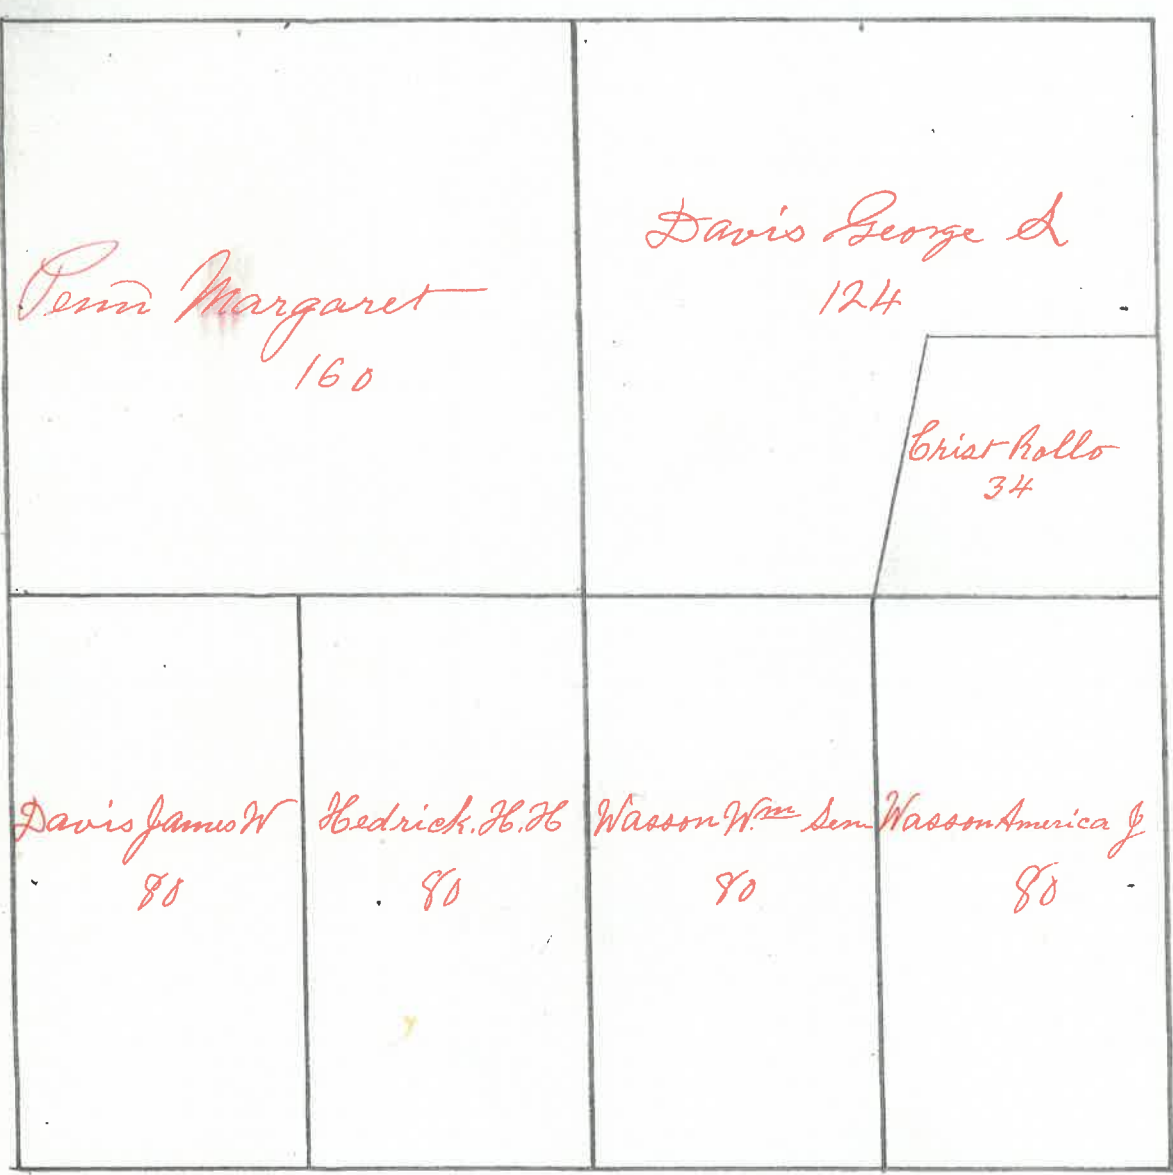 Penn Margaret
160
Davis George S
124
Crist Rollo
34
Davis James W
80
Hedrick. H. H
80
Wasson Wm Sen
80
Wasson America J
80